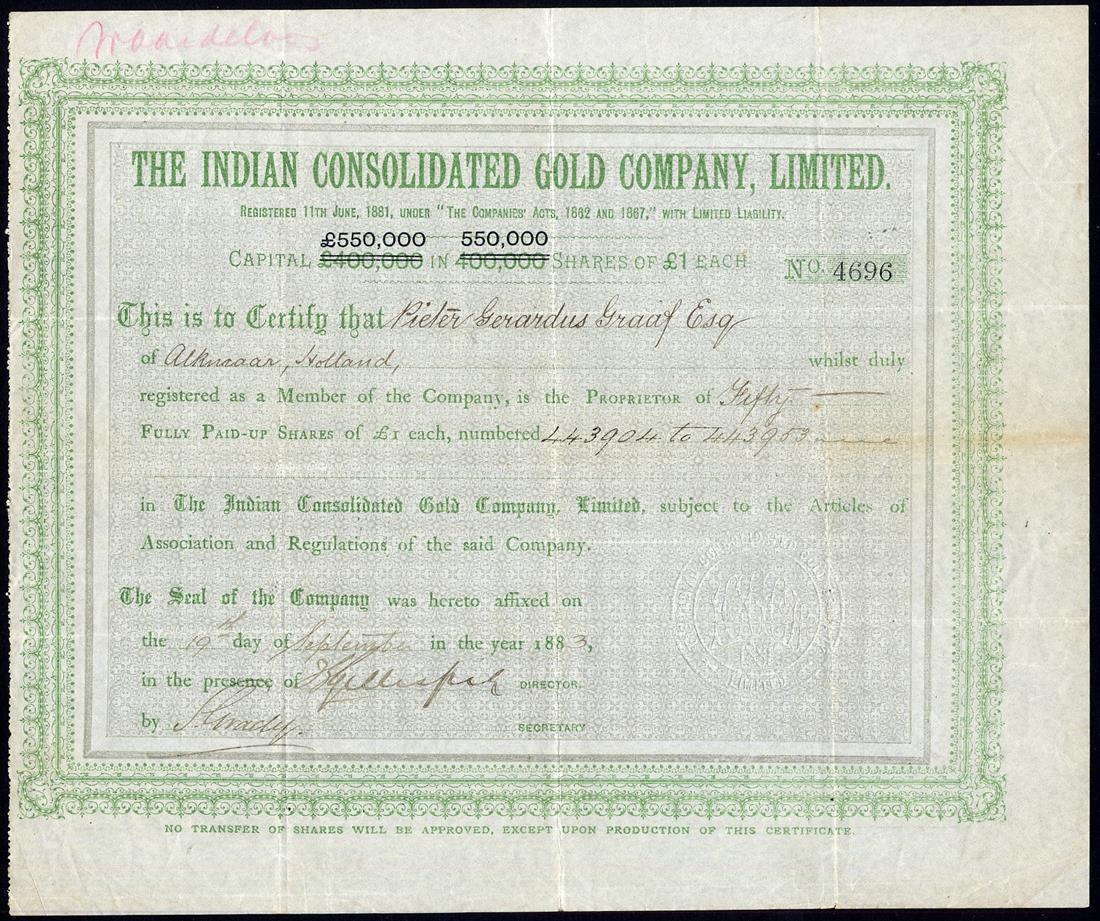 Waardeloos
THE INDIAN CONSOLIDATED GOLD COMPANY, LIMITED.
REGISTERED 11TH JUNE, 1881, UNDER "THE COMPANIES' ACTS, 1862 AND 1867," WITH LIMITED LIABILITY.
£550,000 550,000
CAPITAL £400,000 IN 400,000 SHARES OF £1 EACH
NO. 4696
This is to Certify that Pieter Gerardus Graaf Esq
of Alkmaar, Holland, whilst duly
registered as a Member of the Company, is the PROPRIETOR of Fifty
FULLY PAID-UP SHARES OF £1 each, numbered 443904 to 443953
in The Indian Consolidated Gold Company, Limited, subject to the Articles of
Association and Regulations of the said Company.
The Seal of the Company was hereto affixed on
the 19th day of September in the year 1883,
in the presence of DIRECTOR.
by SECRETARY
NO TRANSFER OF SHARES WILL BE APPROVED, EXCEPT UPON PRODUCTION OF THIS CERTIFICATE.